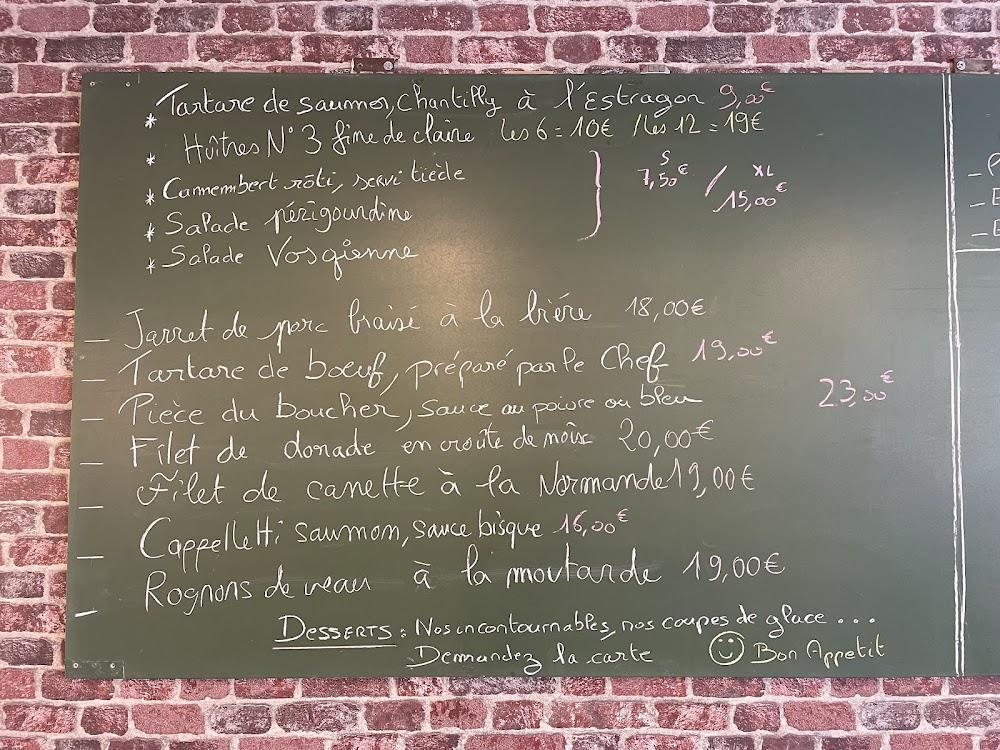 * Tartare de saumon, chantilly à l'Estragon 9,00€
* Huîtres N°3 fine de claire les 6 = 10€ / les 12 = 19€
* Camembert rôti, servi tiède
* Salade périgourdine
* Salade Vosgienne
S 7,50€ / XL 15,00€
_ Jarret de porc braisé à la bière 18,00€
_ Tartare de boeuf, préparé par le Chef 19,00€
_ Pièce du boucher, sauce au poivre ou bleu 23,00€
_ Filet de dorade en croûte de noix 20,00€
_ Filet de canette à la Normande 19,00€
_ Cappelletti saumon, sauce bisque 16,00€
_ Rognons de veau à la moutarde 19,00€
DESSERTS : Nos incontournables, nos coupes de glace ...
Demandez la carte
☺ Bon Appetit